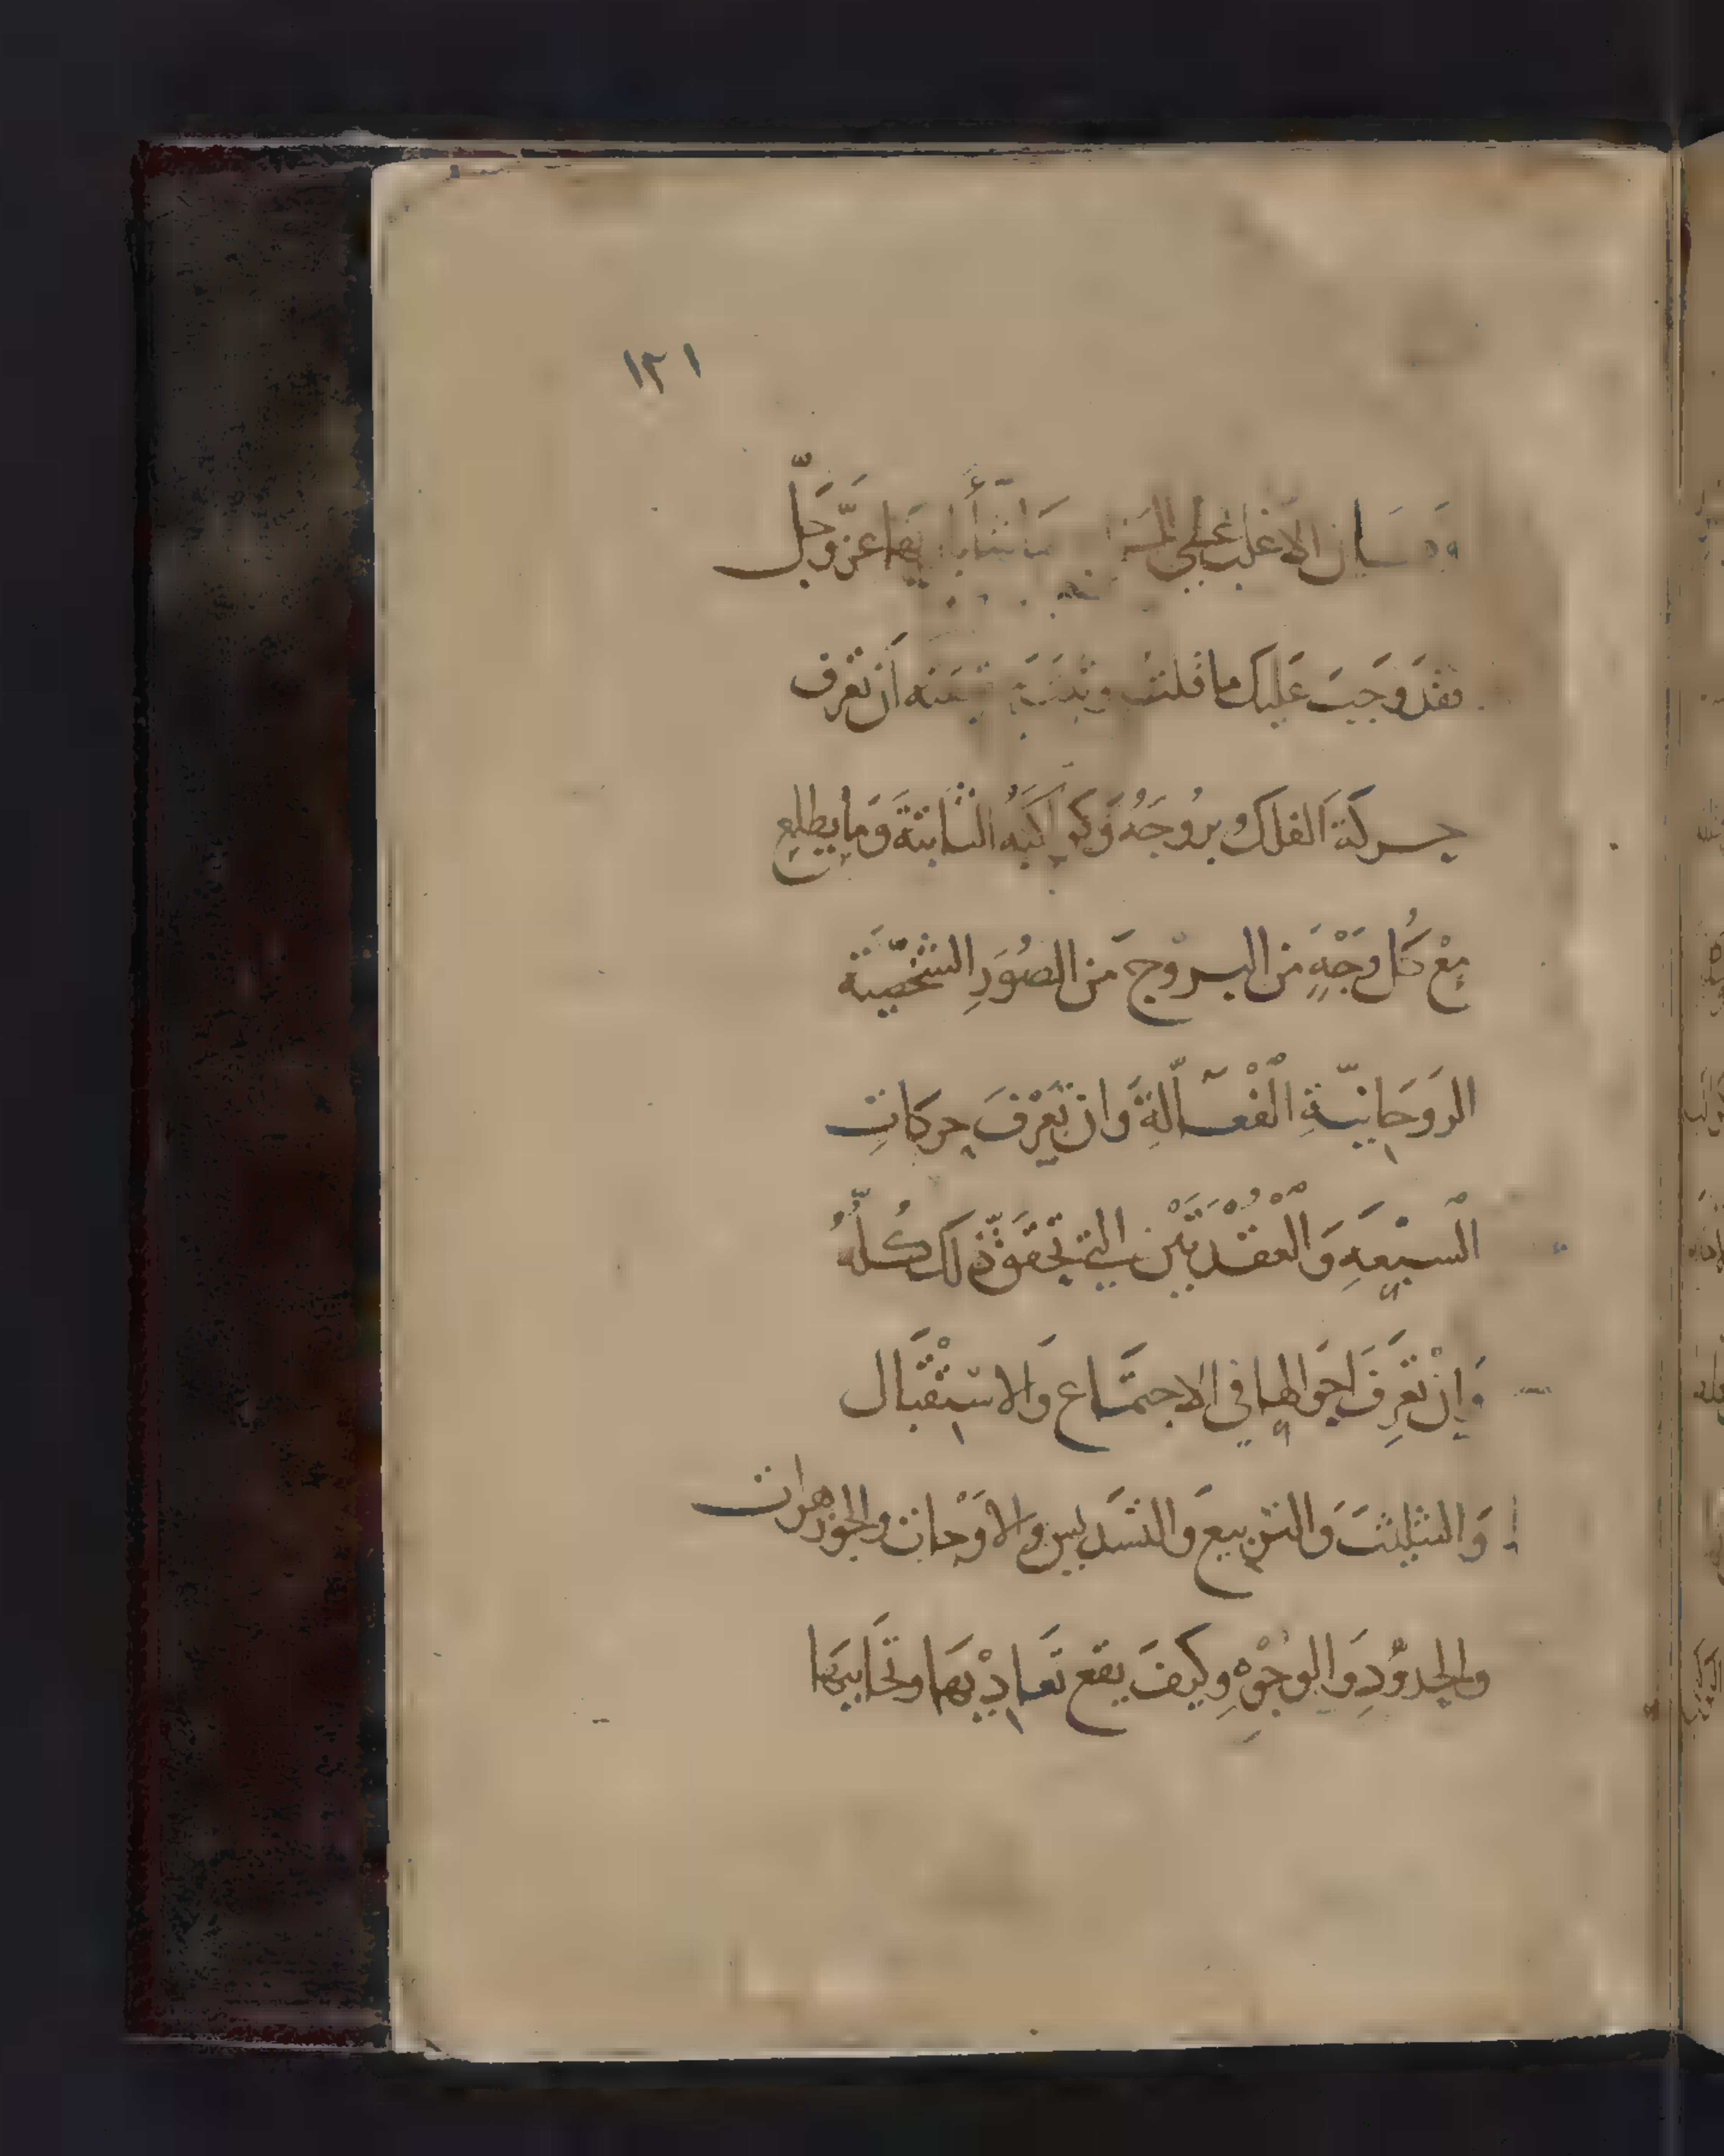 ١٢١
الاغلب على عزّ وَجَلّ
فقَد وَجَبَ عَليك ما قلنا اَن تَعرف
حركة اَلفلك وبرُوجَهُ وَكواكبَهُ الثابتةَ وَما يطلع
مِعْ كُل وَجْهٍ مَن البروْج مَن الصُوَرِ الشخصيّة
الروحَانيّةِ اْلفْعّآلةِ وَان تَعْرفَ حركاتِ
اْلسبْعهِ وَاْلعُقْدتَيْن حتي تحقق ذلك كُلّهُ
وَانْ تَعرِفَ احَوالها في الاجتمَاع وَالاستْقبَال
وَالتثليثَ وَالتربيعَ وَالتسَديس والاوْجات والجوزهرات
والحدوْدِ وَالوجُوْهِ وكيفَ يقع تَعادِيْها وتحَابيهَا